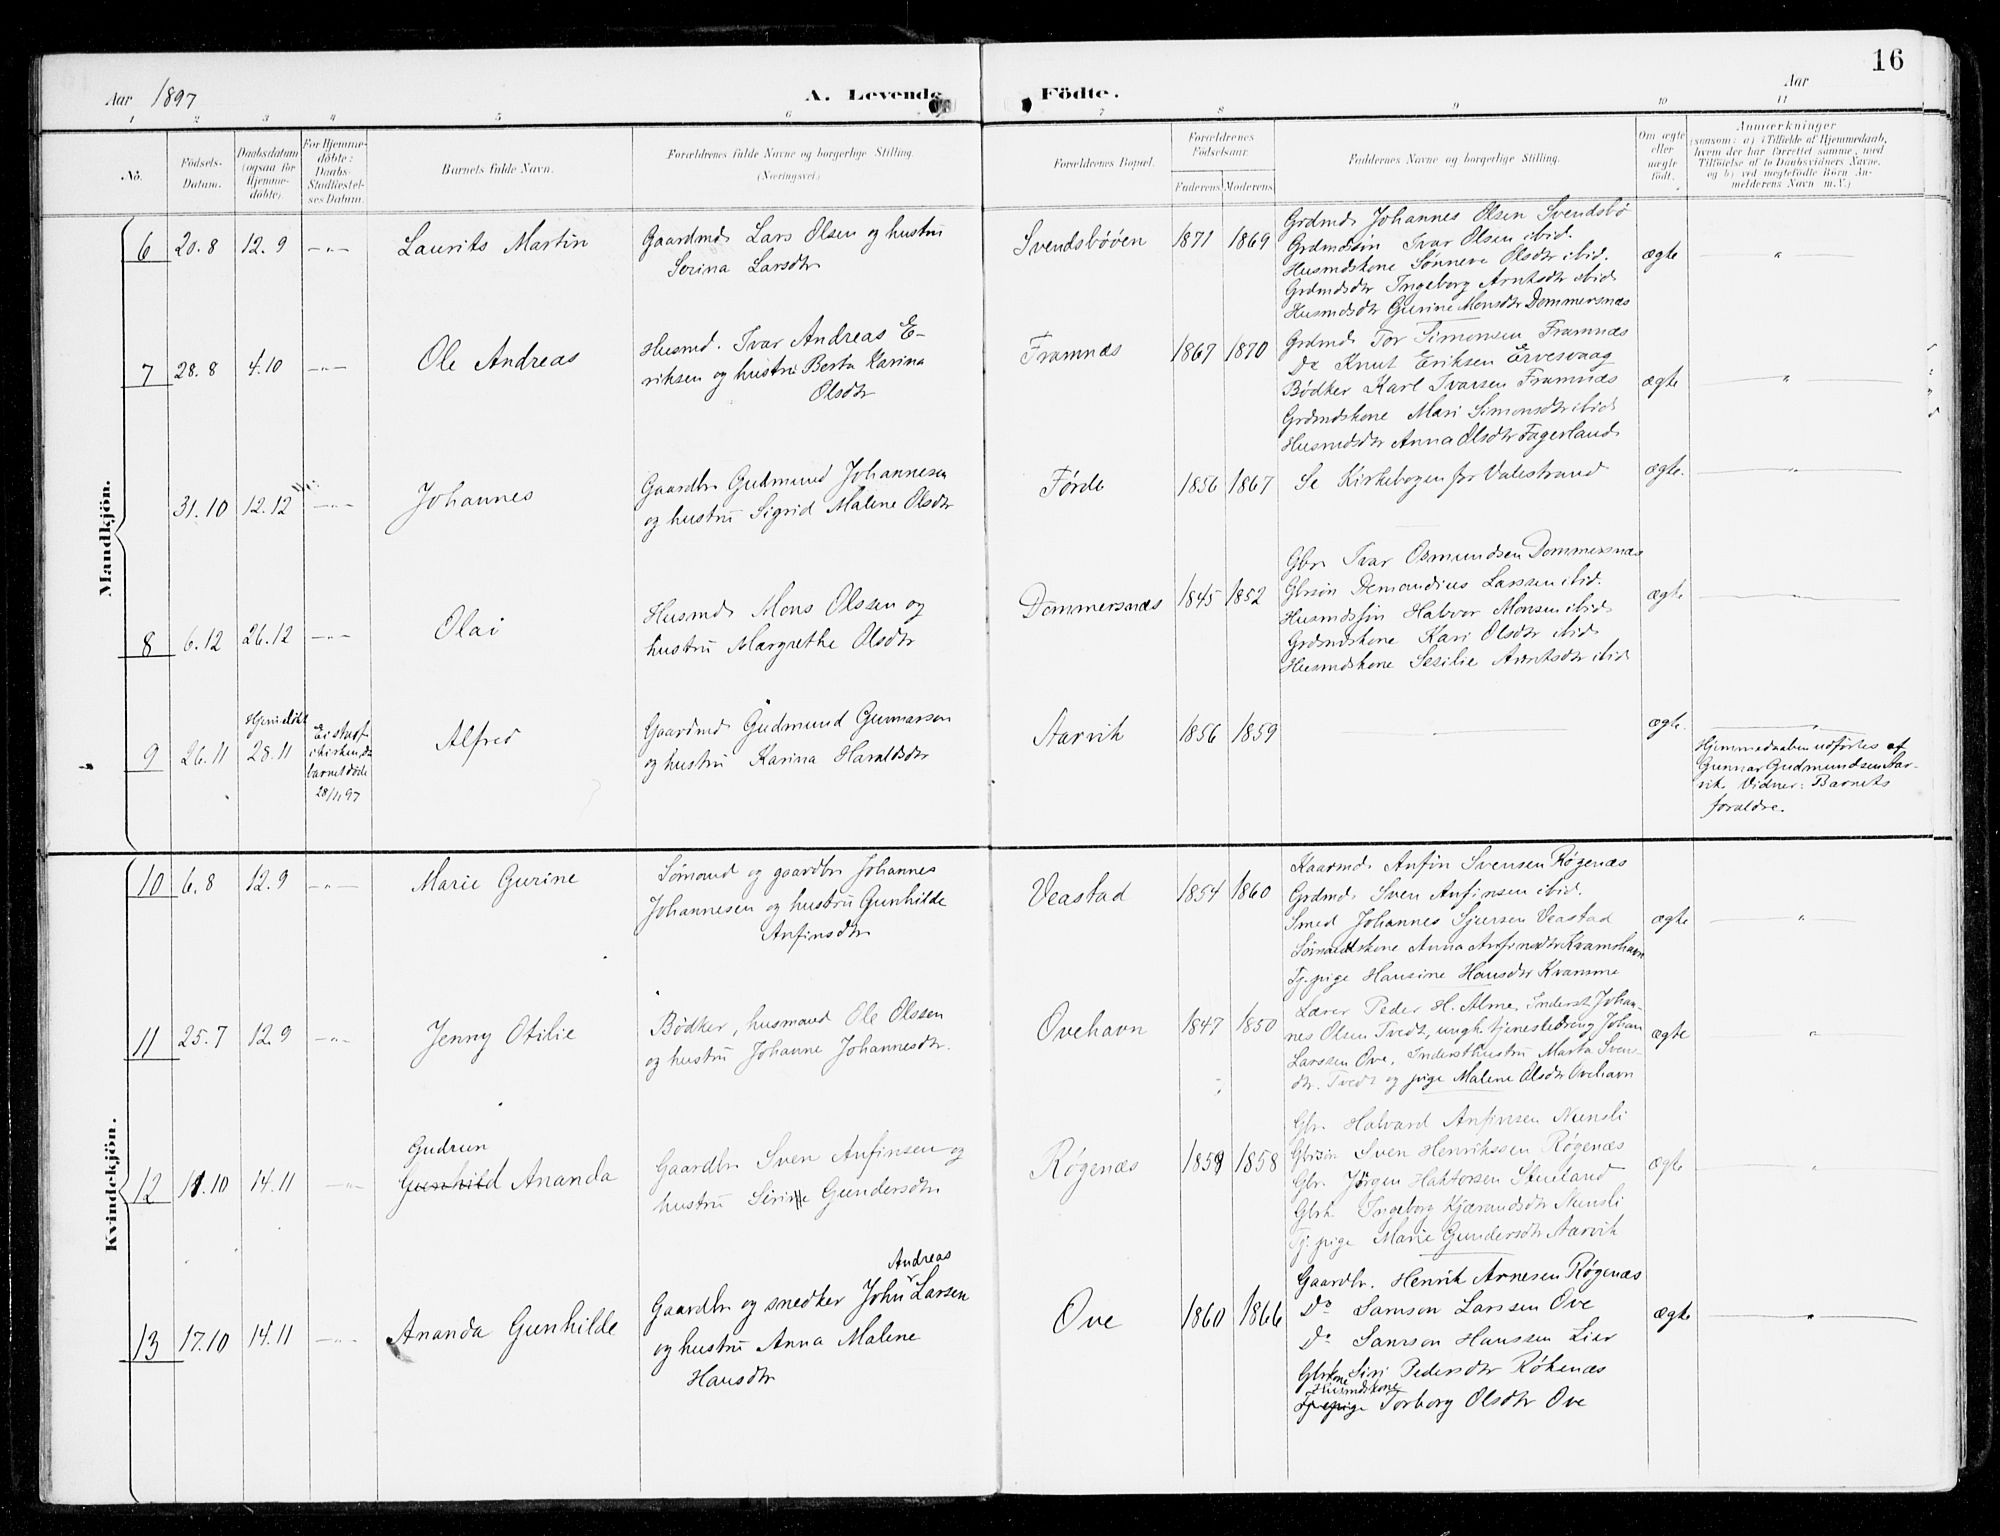 16
Aar 1897 A. Levende Födte. Aar
1 2 3 4 5 6 7 8 9 10 11
No. Födsels-Datum. Daabsdatum (ogsaa for Hjemmedöbte) For Hjemmedöbte: Daabs-Stadfæstelses Datum. Barnets fulde Navn. Forældrenes fulde Navne og borgerlige Stilling. (Næringsvei.) Forældrenes Bopæl. Forældrenes Födselsaar. Faderens. Moderens. Faddernes Navne og borgerlige Stilling. Om ægte eller uægte födt. Anmærkninger (saasom: a) i Tilfælde af Hjemmedaab, hvem der har forrettet samme, med Tilföielse af to Daabsvidners Navne, og b) ved uægtefödte Börn Anmelderens Navn m.V.)
Mandkjön.
6 20.8 12.9 -"- Laurits Martin Gaardmd. Lars Olsen og hustru
Serina Larsdtr Svendsbøen 1871 1869 Grdmd. Johannes Olsen Svendsbø
Grdmdssøn Ivar Olsen ibid.
Husmdskone Sønneve Olsdtr ibid.
Grdmdsdtr Ingeborg Arntsdtr ibid
Husmdsdtr Gurine Monsdtr Dommersnæs
ægte "
7 28.8 4.10 -"- Ole Andreas Husmd. Ivar Andreas E-
riksen og hustru Berta Karina
Olsdtr Framnæs 1867 1870 Grdmd. Tor Simonsen Framnæs
Do Knut Eriksen Ervesvaag
Bødker Karl Ivarsen Framnæs
Grdmdskone Mari Simonsdtr ibid
Husmdsdtr Anna Olsdtr Fagerland
ægte "
31.10 12.12 -"- Johannes Gaardbr Gudmund Johannesen
og hustru Sigrid Malene Olsdtr Førde 1856 1867 Se Kirkebogen for Valestrand ægte. "
8 6.12 26.12 -"- Olai Husmd. Mons Olssen og
hustru Margrethe Olsdtr Dommersnæs 1845 1852 Gbr Ivar Osmundsen Dommersnæs
Gbrsøn Demandius Larssen ibid.
Husmdssøn Halvor Monsen ibid
Grdmdskone Kari Olsdtr ibid
Husmdskone Sesilie Arntsdtr ibid
ægte "
9 26.11 Hjemdøbt
28.11 Ei stadf.
i kirken, da
barnet døde
28/11 97 Alfred Gaardmd Gudmund Gunnarson
og hustru Karina Haraldsdtr Aarvik 1856 1859 ægte. "
Hjemmedaaben udførtes af
Gunnar Gudmundsen Aar-
vik. Vidner: Barnets
forældre.
Kvindekjön.
10 6.8 12.9 -"- Marie Gurine Sømand og gaardbr Johannes
Johannesen og hustru Gunhilde
Anfinsdtr Veastad 1854 1860 Kaarmd. Anfin Svensen Røgenæs
Grdmd. Sven Anfinsen ibid.
Smed Johannes Sjursen Veastad
Sømandskone Anna Anfinsdtr Kvamshavn
Tj.pige Hansine Hansdtr Kvamme
ægte "
11 25.7 12.9 -"- Jenny Otilie Bødker, husmand Ole Olssen
og hustru Johanne Johannesdtr. Ovehavn 1847 1850 Lærer Peder H. Alme, Inderst Johan-
nes Olsen Tvedt, ungk. tjenestedreng Johan
Larssen Ove, Indersthustru Marta Svens-
dtr. Tvedt og pige Malene Olsdtr Ovehavn
ægte "
12 11.10 14.11 -"- Gudrun
Gunhild Ananda Gaardbr Sven Anfinsen og
hustru Serine Gundersdtr Røgenæs 1859 1858 Gbr. Halvard Anfinsen Nunsli
Gbrsøn Sven Henrikssen Røgenæs
Gbr. Jørgen Haktorsen Stueland
Gbrk. Ingeborg Kjærandsdtr Nunsli
Tj. pige Marie Gundersdtr Aarvik
ægte "
13 17.10 14.11 -"- Ananda Gunhilde Andreas
Gaardbr og snedker John Larsen
og hustru Anna Malene
Hansdtr Ove 1860 1866 Gaardbr. Henrik Arnesen Røgenæs
Do Samson Larssen Ove
Do Samson Hanssen Lier
Gbrkone Siri Pedersdtr Røkenæs
Husmdskone
Tj. pige Torborg Olsdtr Ove
ægte "